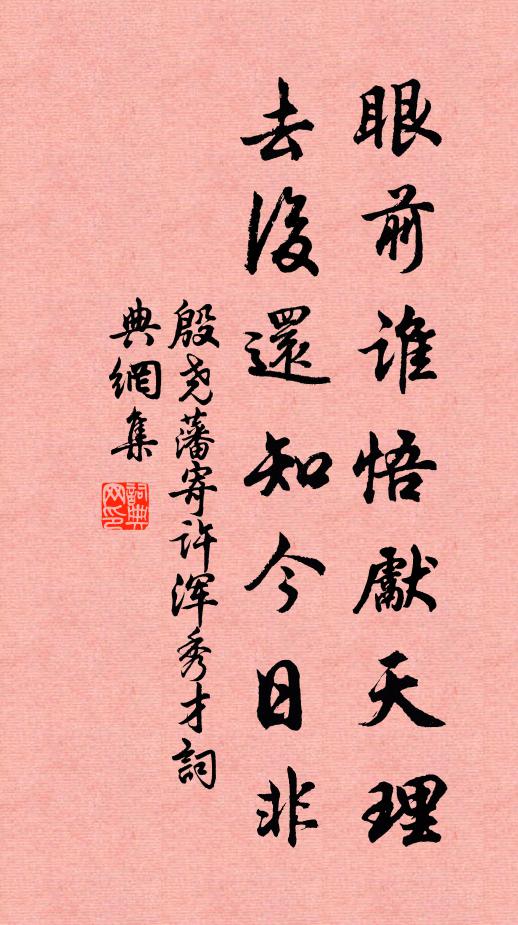 眼前谁悟獻天理
去後還知今日非
殷尧藩寄许浑秀才詞
典網集
詞典
网印